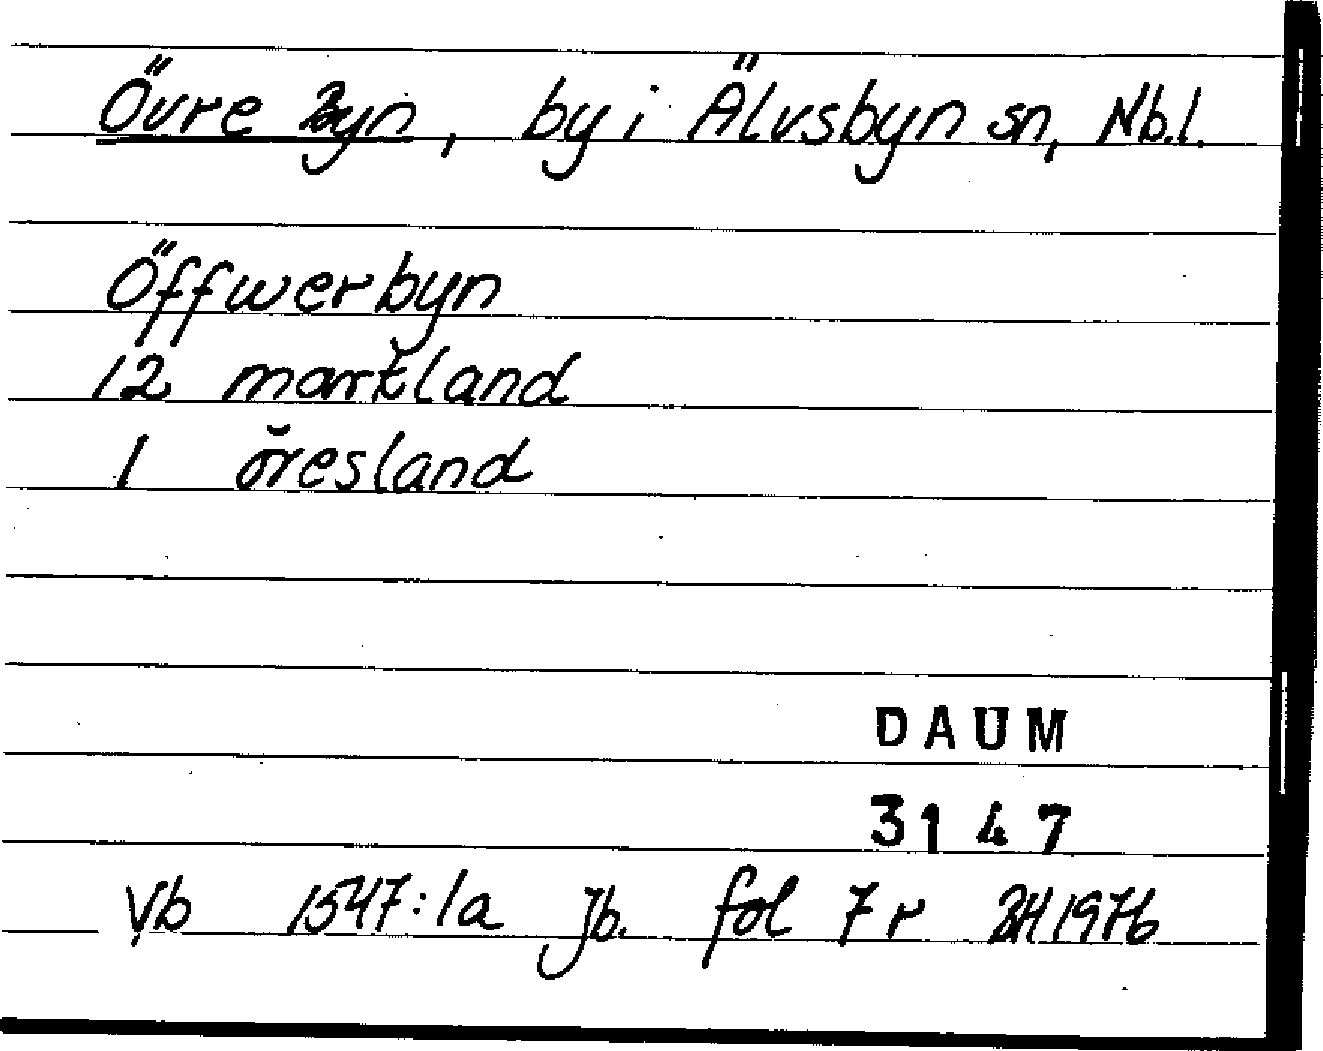 Övre Byn, by i Älvsbyn sn, Nb.l.
Öffwerbyn
12 markland
1 öresland
DAUM
3147
Vb 1547:1a Jb. fol 7r BH 1976